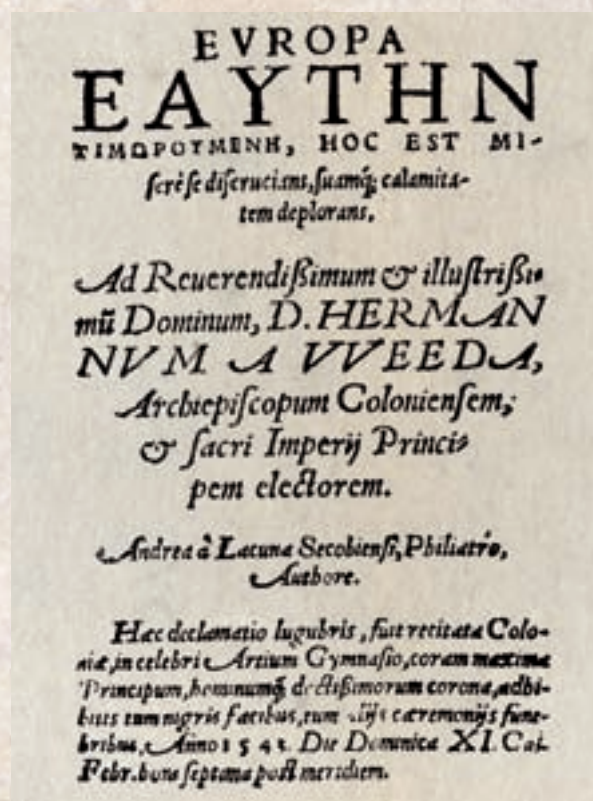 EVROPA
EAYTHN
ΤΙΜΩΡΟΥΜΕΝΗ, HOC EST MI-
ſerè ſe diſcrucians, ſuamq́; calamita-
tem deplorans.
Ad Reuerendißimum & illuſtrißi-
mū Dominum, D. HERMAN
NVM A VVEEDA,
Archiepiſcopum Colonienſem,
& ſacri Imperij Princi-
pem electorem.
Andrea à Lacuna Secobienſi, Philiatro,
Authore.
Hæc declamatio lugubris, fuit recitata Colo-
niæ, in celebri Artium Gymnaſio, coram maxima
Principum, hominumq́; doctißimorum corona, adhi-
bitis tum nigris facibus, tum alijs cæremonijs fune-
bribus, Anno 1 5 4 Die Dominica XI. Cal.
Febr. hora ſeptima poſt meridiem.